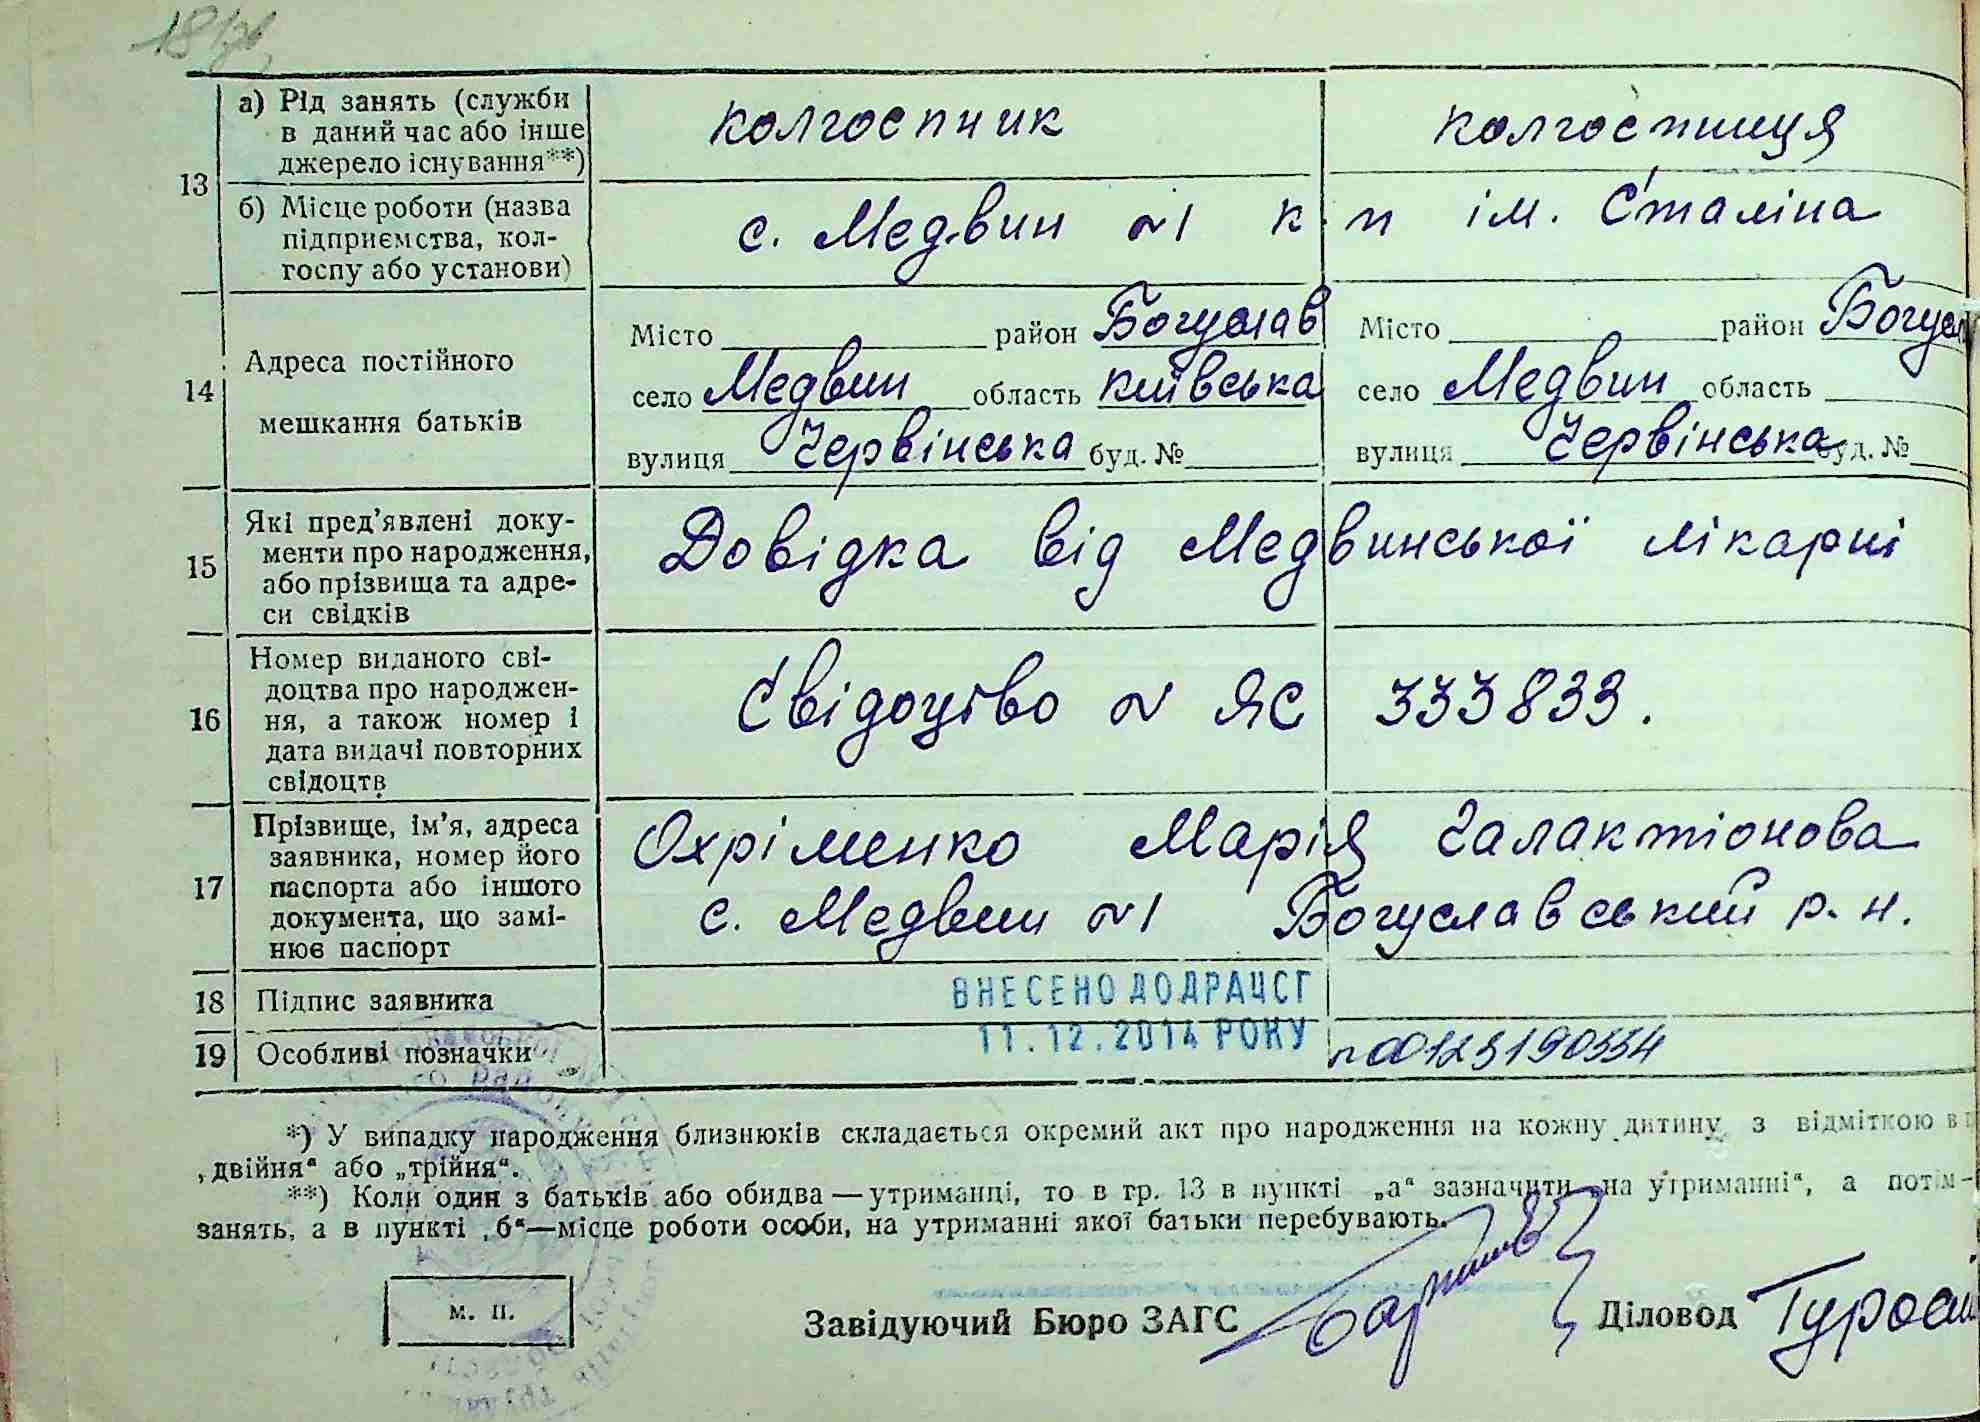 а) Рід занять (служби
в даний час або інше
джерело існування**)
колгоспник
колгоспниця
13
б) Місце роботи (назва
підприємства, кол-
госпу або установи)
с. Медвин №1 к-п ім. Сталіна
14
Адреса постійного
мешкання батьків
Місто район Богуслав
село Медвин область київська
вулиця Червінська буд. №
Місто район Богусл
село Медвин область
вулиця Червінська буд. №
15
Які пред’явлені доку-
менти про народження,
або прізвища та адре-
си свідків
Довідка від Медвинської лікарні
16
Номер виданого сві-
доцтва про народжен-
ня, а також номер і
дата видачі повторних
свідоцтв
Свідоцтво № ЯС 333833.
17
Прізвище, ім’я, адреса
заявника, номер його
паспорта або іншого
документа, що замі-
нює паспорт
Охріменко Марія Галактіонова
с. Медвин №1 Богуславський р.н.
18
Підпис заявника
ВНЕСЕНО ДО ДРАЦСГ
19
Особливі позначки
11.12.2014 РОКУ
*) У випадку народження близнюків складається окремий акт про народження на кожну дитину з відміткою
„двійня“ або „трійня“.
**) Коли один з батьків або обидва — утриманці, то в гр. 13 в пункті „а“ зазначити „на утриманні“, а потім—
занять, а в пункті „б“—місце роботи особи, на утриманні якої батьки перебувають.
м. п.
Завідуючий Бюро ЗАГС
Діловод